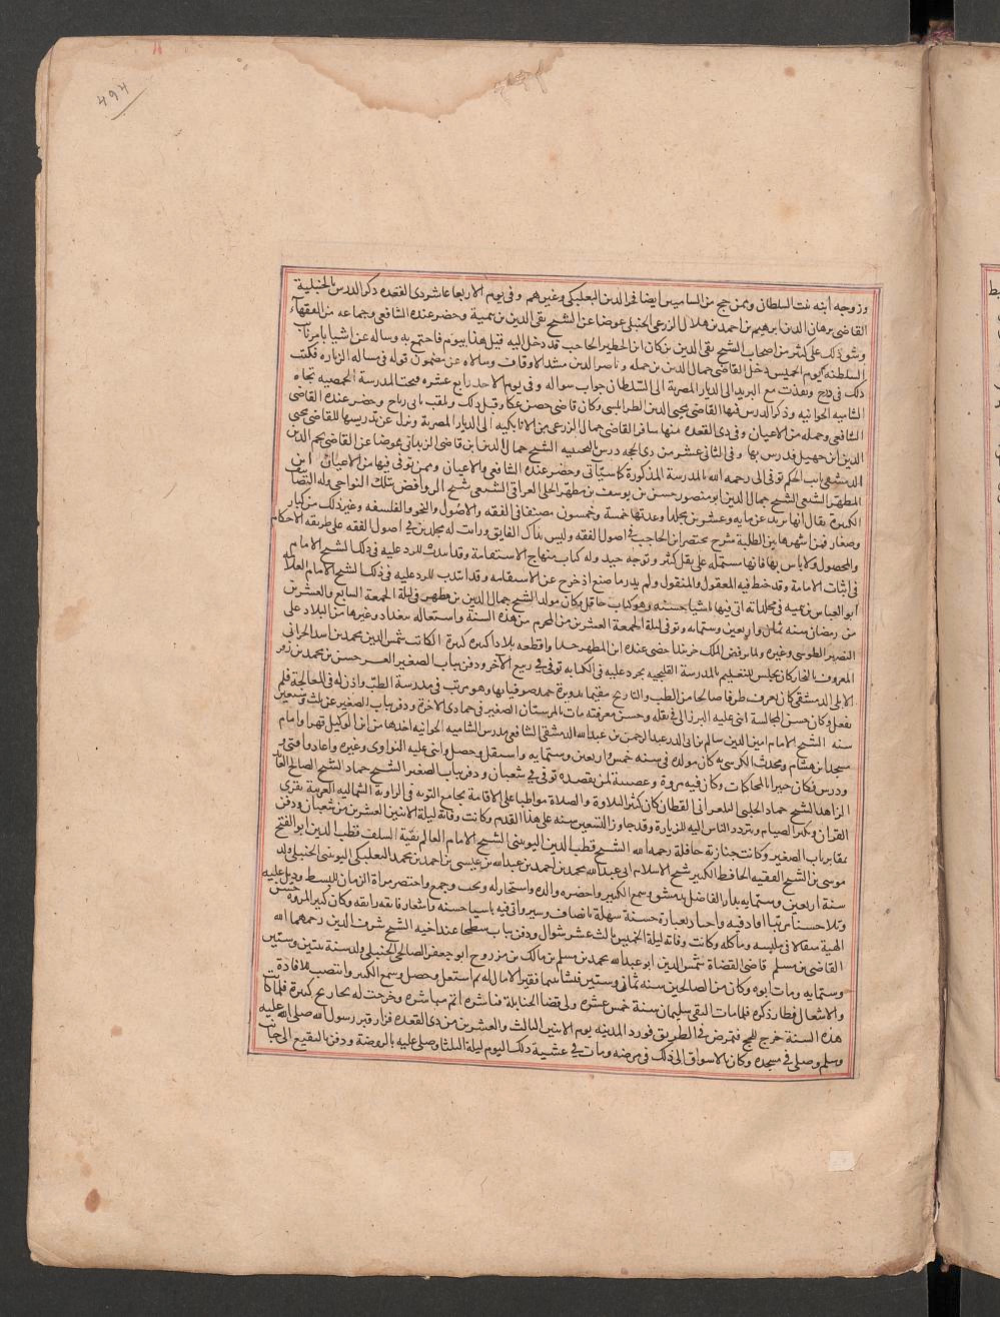 ٤٩٤
وزوجه ابنه بنت السلطان وممن حج من الشاميين ايضا فخر الدين البعلبكي وغيرهم وفي يوم الاربعا عاشر ذي القعده ذكر الدرس بالحنبلية
القاضي برهان الدين ابرهيم بن احمد بن هلال الزرعي الحنبلي عوضا عن الشيخ تقي الدين بن تيمية وحضر عنده القاضي الشافعي وجماعه من الفقهاء
وشق ذلك على كثير من اصحاب الشيخ تقي الدين بن كان ابن الخطير الحاجب قد دخل اليه قبل هذا بيوم فاجتمع به وساله عن اشيا بامر نايب
السلطنه يوم الخميس دخل القاضي جمال الدين بن جمله وناصر الدين مشد الاوقاف وسالاه عن مضمون قوله في مساله الزياره فكتب
ذلك في درج وبعثت مع البريد الى الديار المصرية الى السلطان جواب سواله وفي يوم الاحد رابع عشره فتحت المدرسة الحمصيه تجاه
الشاميه الجوانيه وذكر الدرس فيها القاضي محيي الدين الطرابلسي وكان قاضي حصن عكار وقبل ذلك ولقب بابي رباح وحضر عنده القاضي
الشافعي وجمله من الاعيان وفي ذي القعده منها سافر القاضي جمال الزرعي من الاتابكيه الى الديار المصرية ونزل عن تدريسها للقاضي محيي
الدين ابن جهبل فدرس بها وفي الثاني عشر من ذي الحجه درس بالنجيبيه الشيخ جمال الدين ابن قاضي الزبداني عوضا عن القاضي نجم الدين
الدمشقي نايب الحكم توفي الى رحمه الله بالمدرسة المذكورة كما سياتي وحضر عنده الشافعي والاعيان وممن توفي فيها من الاعيان ابن
المطهر الشيعي الشيخ جمال الدين ابو منصور حسن بن يوسف بن مطهر الحلي العراقي الشيعي شيخ الروافض بتلك النواحي وله التصانيف
الكثيرة يقال انها تزيد عن مايه وعشرين مجلدا وعدتها خمسة وخمسون مصنفا في الفقه والاصول والنحو والفلسفه وغير ذلك من كبار
وصغار فمن اشهرها بين الطلبة شرح مختصر ابن الحاجب في اصول الفقه وليس بذاك الفايق ورايت له مجلدين في اصول الفقه على طريقه الاحكام
والمحصول ولا باس بها فانها مشتمله على نقل كثير وتوجه جيد وله كتاب منهاج الاستقامة
في اثبات الامامة وقد خبط فيه المعقول والمنقول ولم يدر ما صنع اذ خرج عن الاستقامه وقد انتدب للرد عليه في ذلك الشيخ الامام العلامة
ابو العباس بن تيميه في مجلدات اتى فيها باشيا حسنه وهو كتاب حافل وكان مولد الشيخ جمال الدين بن مطهر في ليلة الجمعة السابع والعشرين
من رمضان سنه ثمان واربعين وستمايه وتوفي ليلة الجمعة العشرين من المحرم من هذه السنة واشتغاله ببغداد وغيرها من البلاد على
النصير الطوسي وغيره ولما ترفض الملك خربندا حظي عنده ابن المطهر جدا واقطعه بلادا كبيره كثيرة الكاتب شمس الدين محمد بن اسد الحراني
المعروف بالنجار كان يجلس للتعليم بالمدرسة القليجيه يجود عليه في الكتابه توفي في ربيع الآخر ودفن بباب الصغير العز حسن بن محمد بن زفر
الاربلي الدمشقي كان يعرف طرفا صالحا من الطب والتاريخ مقيما بدويرة حمد صوفيا بها وهو مرتب في مدرسة الطب واذن له في المعالجة فلم
يفعل وكان حسن المجالسة اثنى عليه البرزالي في نقله وحسن معرفته مات بالمارستان الصغير في جمادى الاخرة ودفن بباب الصغير عن ثلث وستين
سنه الشيخ الامام امين الدين سالم بن ابي الدر عبد الرحمن بن عبد الله الدمشقي الشافعي مدرس الشاميه الجوانيه اخذها من ابن الوكيل قهرا وامام
مسجد ابن هشام ومحدث الكرسي به كان مولده في سنه خمس واربعين وستمايه واشتغل وحصل واثنى عليه النواوي وغيره واعاد وافتى
ودرس وكان خبيرا بالمحاكمات وكان فيه مروة وعصبية لمن يقصده توفي في شعبان ودفن بباب الصغير الشيخ حماد الشيخ الصالح العابد
الزاهد الشيخ حماد الحلبي القطان كان كثير التلاوة والصلاة مواظبا على الاقامة بجامع التوبه في الزاوية الغربية يقرئ
القران ويكثر الصيام ويتردد الناس اليه للزيارة وقد جاوز التسعين سنه على هذا القدم وكانت وفاته ليلة الاثنين العشرين من شعبان ودفن
بمقابر باب الصغير وكانت جنازته حافلة رحمه الله الشيخ قطب الدين اليونيني الشيخ الامام العالم بقية السلف قطب الدين ابو الفتح
موسى بن الشيخ الفقيه الحافظ الكبير شيخ الاسلام ابي عبد الله محمد بن احمد بن عبد الله بن عيسى بن احمد بن محمد البعلبكي اليونيني الحنبلي ولد
سنة اربعين وستمايه بدار الفاضل بدمشق وسمع الكبير واحضره والده واستجاز له وبحث وجمع واختصر مراة الزمان للسبط وذيل عليه
وتلا حسنا مرتبا افاد فيه واجاد بعبارة حسنة سهلة بانصاف وستر واتى فيه باشيا حسنه واشعار فايقه رايقه وكان كثير المروه حسن
الهية متقللا في ملبسه وماكله وكانت وفاته ليلة الخميس ثالث عشر شوال ودفن بباب سطحا عند اخيه الشيخ شرف الدين رحمهما الله
القاضي بن مسلم قاضي القضاة شمس الدين ابو عبد الله محمد بن مسلم بن مالك بن مزروع ابو جعفر الصالحي الحنبلي ولد سنة ستين وستين
وستمايه ومات ابوه وكان من الصالحين سنه ثمان وستين فنشا يتيما فقيرا لا مال له ثم اشتغل وحصل وسمع الكثير وانتصب للافادة
والاشتغال فطار ذكره فلما مات التقي سليمان سنة خمس عشره ولي قضا الحنابلة فباشره اتم مباشره وخرجت له تخاريج كثيرة فلما كانت
هذه السنة خرج للحج فتمرض في الطريق فورد المدينه يوم الاثنين الثالث والعشرين من ذي القعده فزار قبر رسول الله صلى الله عليه
وسلم وصلى في مسجده وكان بالاشواق الى ذلك في مرضه ومات في عشية ذلك اليوم ليلة الثلثا وصلي عليه بالروضة ودفن بالبقيع الى جانب